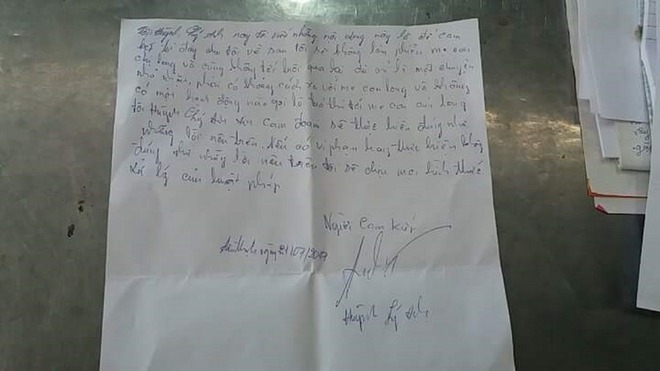 Tôi Huỳnh Lý Anh nay tôi viết những nội dung này là để cam
kết từ đây sau tôi về sau tôi sẽ không làm phiền mẹ con
chị Long và cũng không tới lui qua lại dù chỉ là một chuyện
nhỏ nhất, phải có khoảng cách xa với mẹ con Long và không
có một hành động nào gọi là tới mẹ con của Long
tôi Huỳnh Lý Anh xin cam đoan sẽ thực hiện đúng như
những lời nêu trên, nếu có vi phạm hay thực hiện không
đúng như những lời nêu trên tôi sẽ chịu mọi hình thức
xử lý của luật pháp.
Người Cam Kết
ngày 21/07/2017
Huỳnh Lý Anh